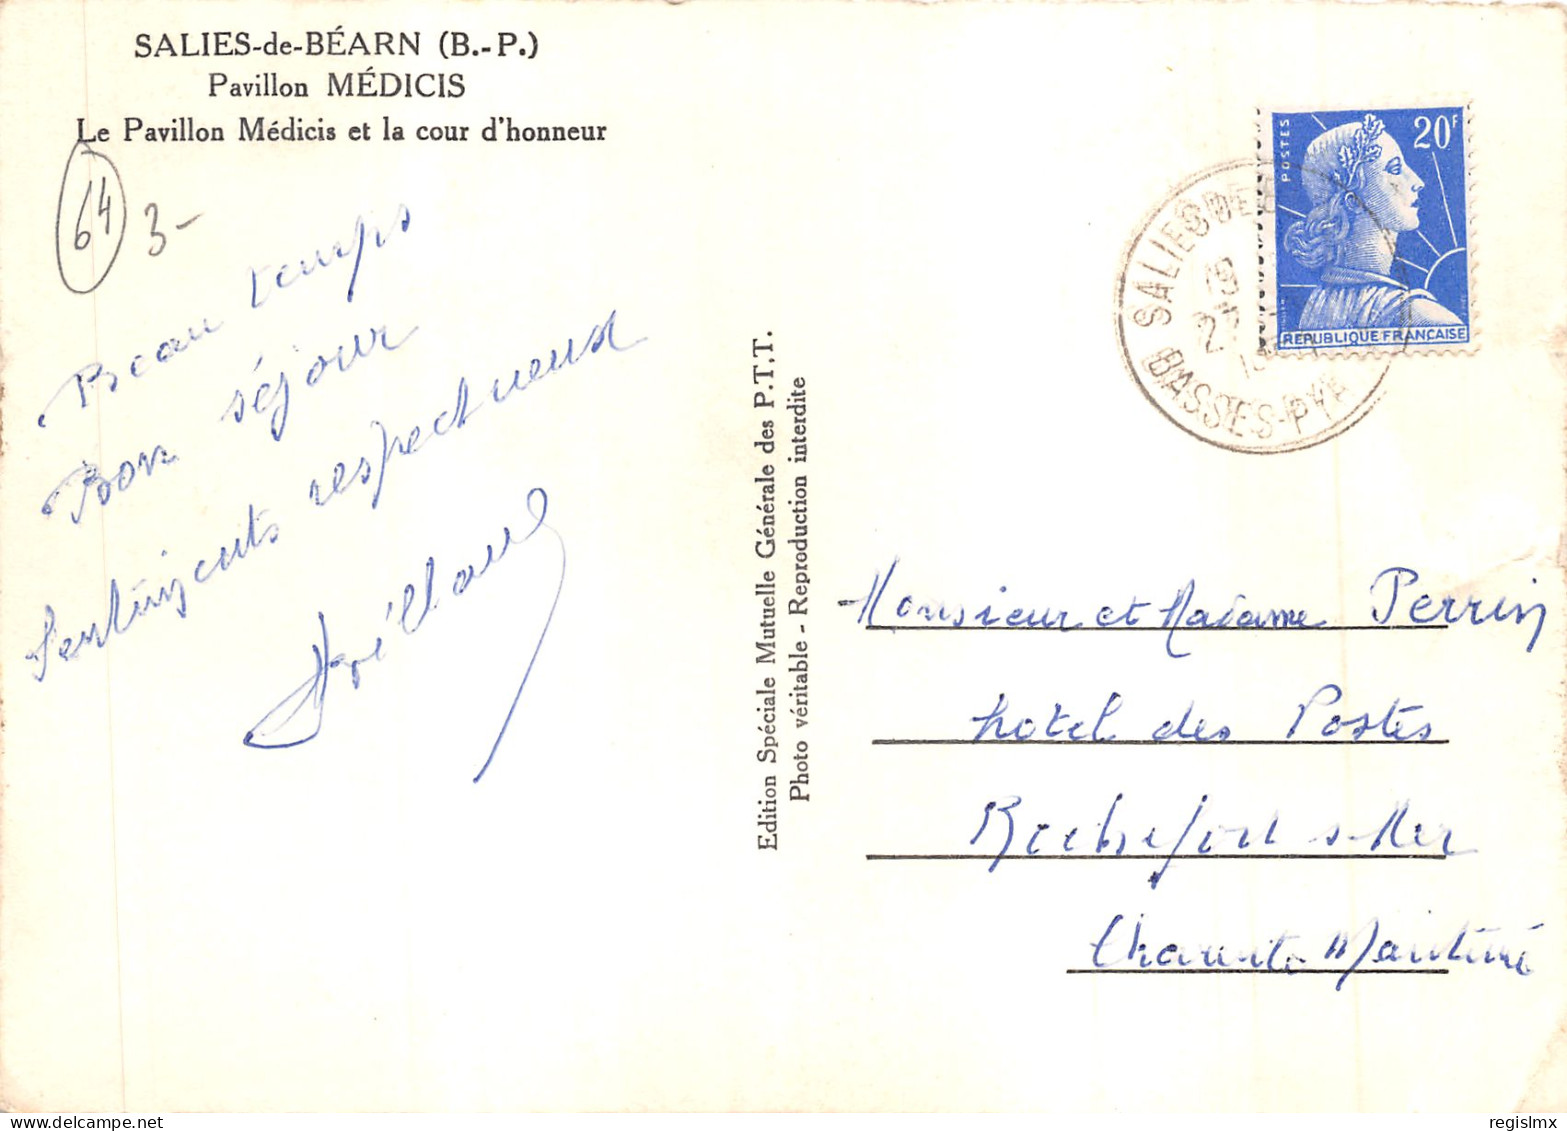 SALIES-de-BÉARN (B.-P.)
Pavillon MÉDICIS
Le Pavillon Médicis et la cour d'honneur
64
3-
Beau temps
Bon séjour
Sentiments respectueux
Edition Spéciale Mutuelle Générale des P.T.T.
Photo véritable - Reproduction interdite
POSTES
20F
REPUBLIQUE FRANÇAISE
SALIES DE B
19
27
BASSES-PYR
Monsieur et Madame Perrin
hotel des Postes
Rochefort s-Mer
Charente Maritime
regislmx